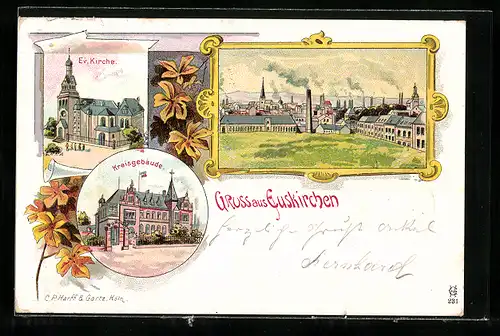 Ev. Kirche.
Kreisgebäude.
Gruss aus Euskirchen
Herzliche Gruß Onkel
Bernhard
C. P. Harff & Gorte, Köln.
231